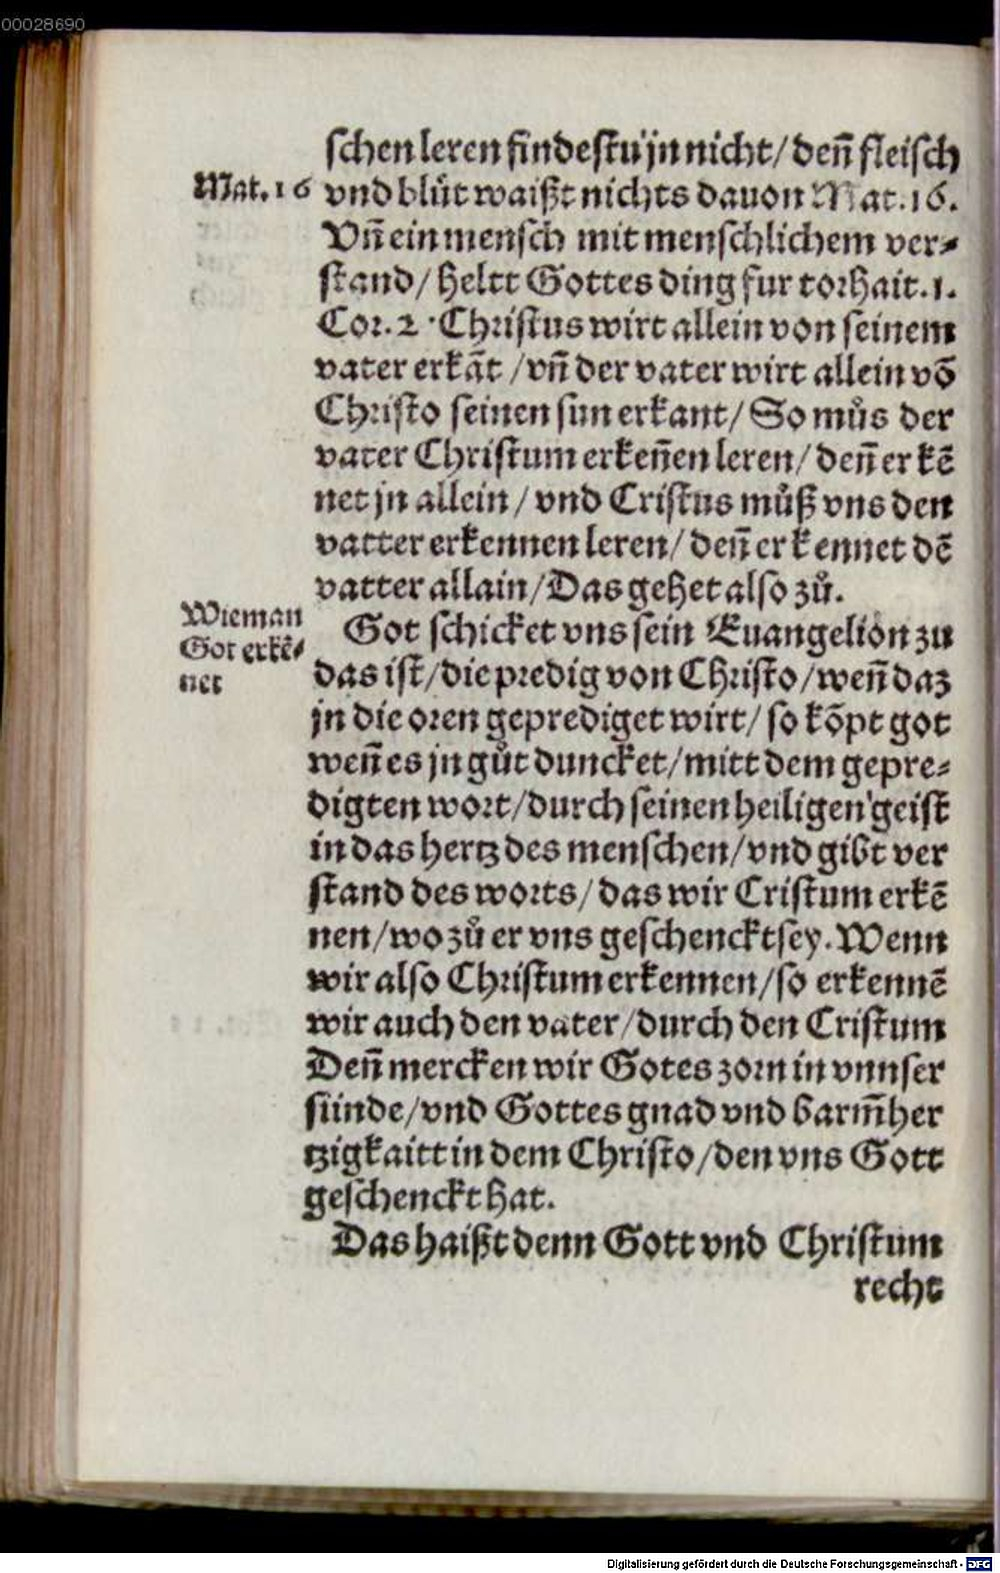 00028690
schen leren findestu jn nicht/ deñ fleisch
Mat. 16
vnd blůt waißt nichts dauon Mat. 16.
Vñ ein mensch mit menschlichem ver-
stand/ heltt Gottes ding fur torhait. 1.
Cor. 2 · Christus wirt allein von seinem
vater erkãt /vñ der vater wirt allein võ
Christo seinen sun erkant/ So můs der
vater Christum erkeñen leren/ deñ er kẽ
net jn allein / vnd Cristus můß vns den
vatter erkennen leren/ deñ er kennet dẽ
vatter allain/ Das gehet also zů.
Wie man
Got erkẽ-
net
Got schicket vns sein Euangelion zu
das ist/ die predig von Christo/ weñ daz
jn die oren geprediget wirt/ so kõpt got
weñ es jn gůt duncket/ mitt dem gepre-
digten wort/ durch seinen heiligen geist
in das hertz des menschen/ vnd gibt ver
stand des worts/ das wir Cristum erkẽ
nen/ wo zů er vns geschenckt sey. Wenn
wir also Christum erkennen/ so erkennẽ
wir auch den vater/ durch den Cristum
Deñ mercken wir Gotes zorn in vnnser
sünde/ vnd Gottes gnad vnd barm̃her
tzigkaitt in dem Christo/ den vns Gott
geschenckt hat.
Das haißt denn Gott vnd Christum
recht
Digitalisierung gefördert durch die Deutsche Forschungsgemeinschaft - DFG